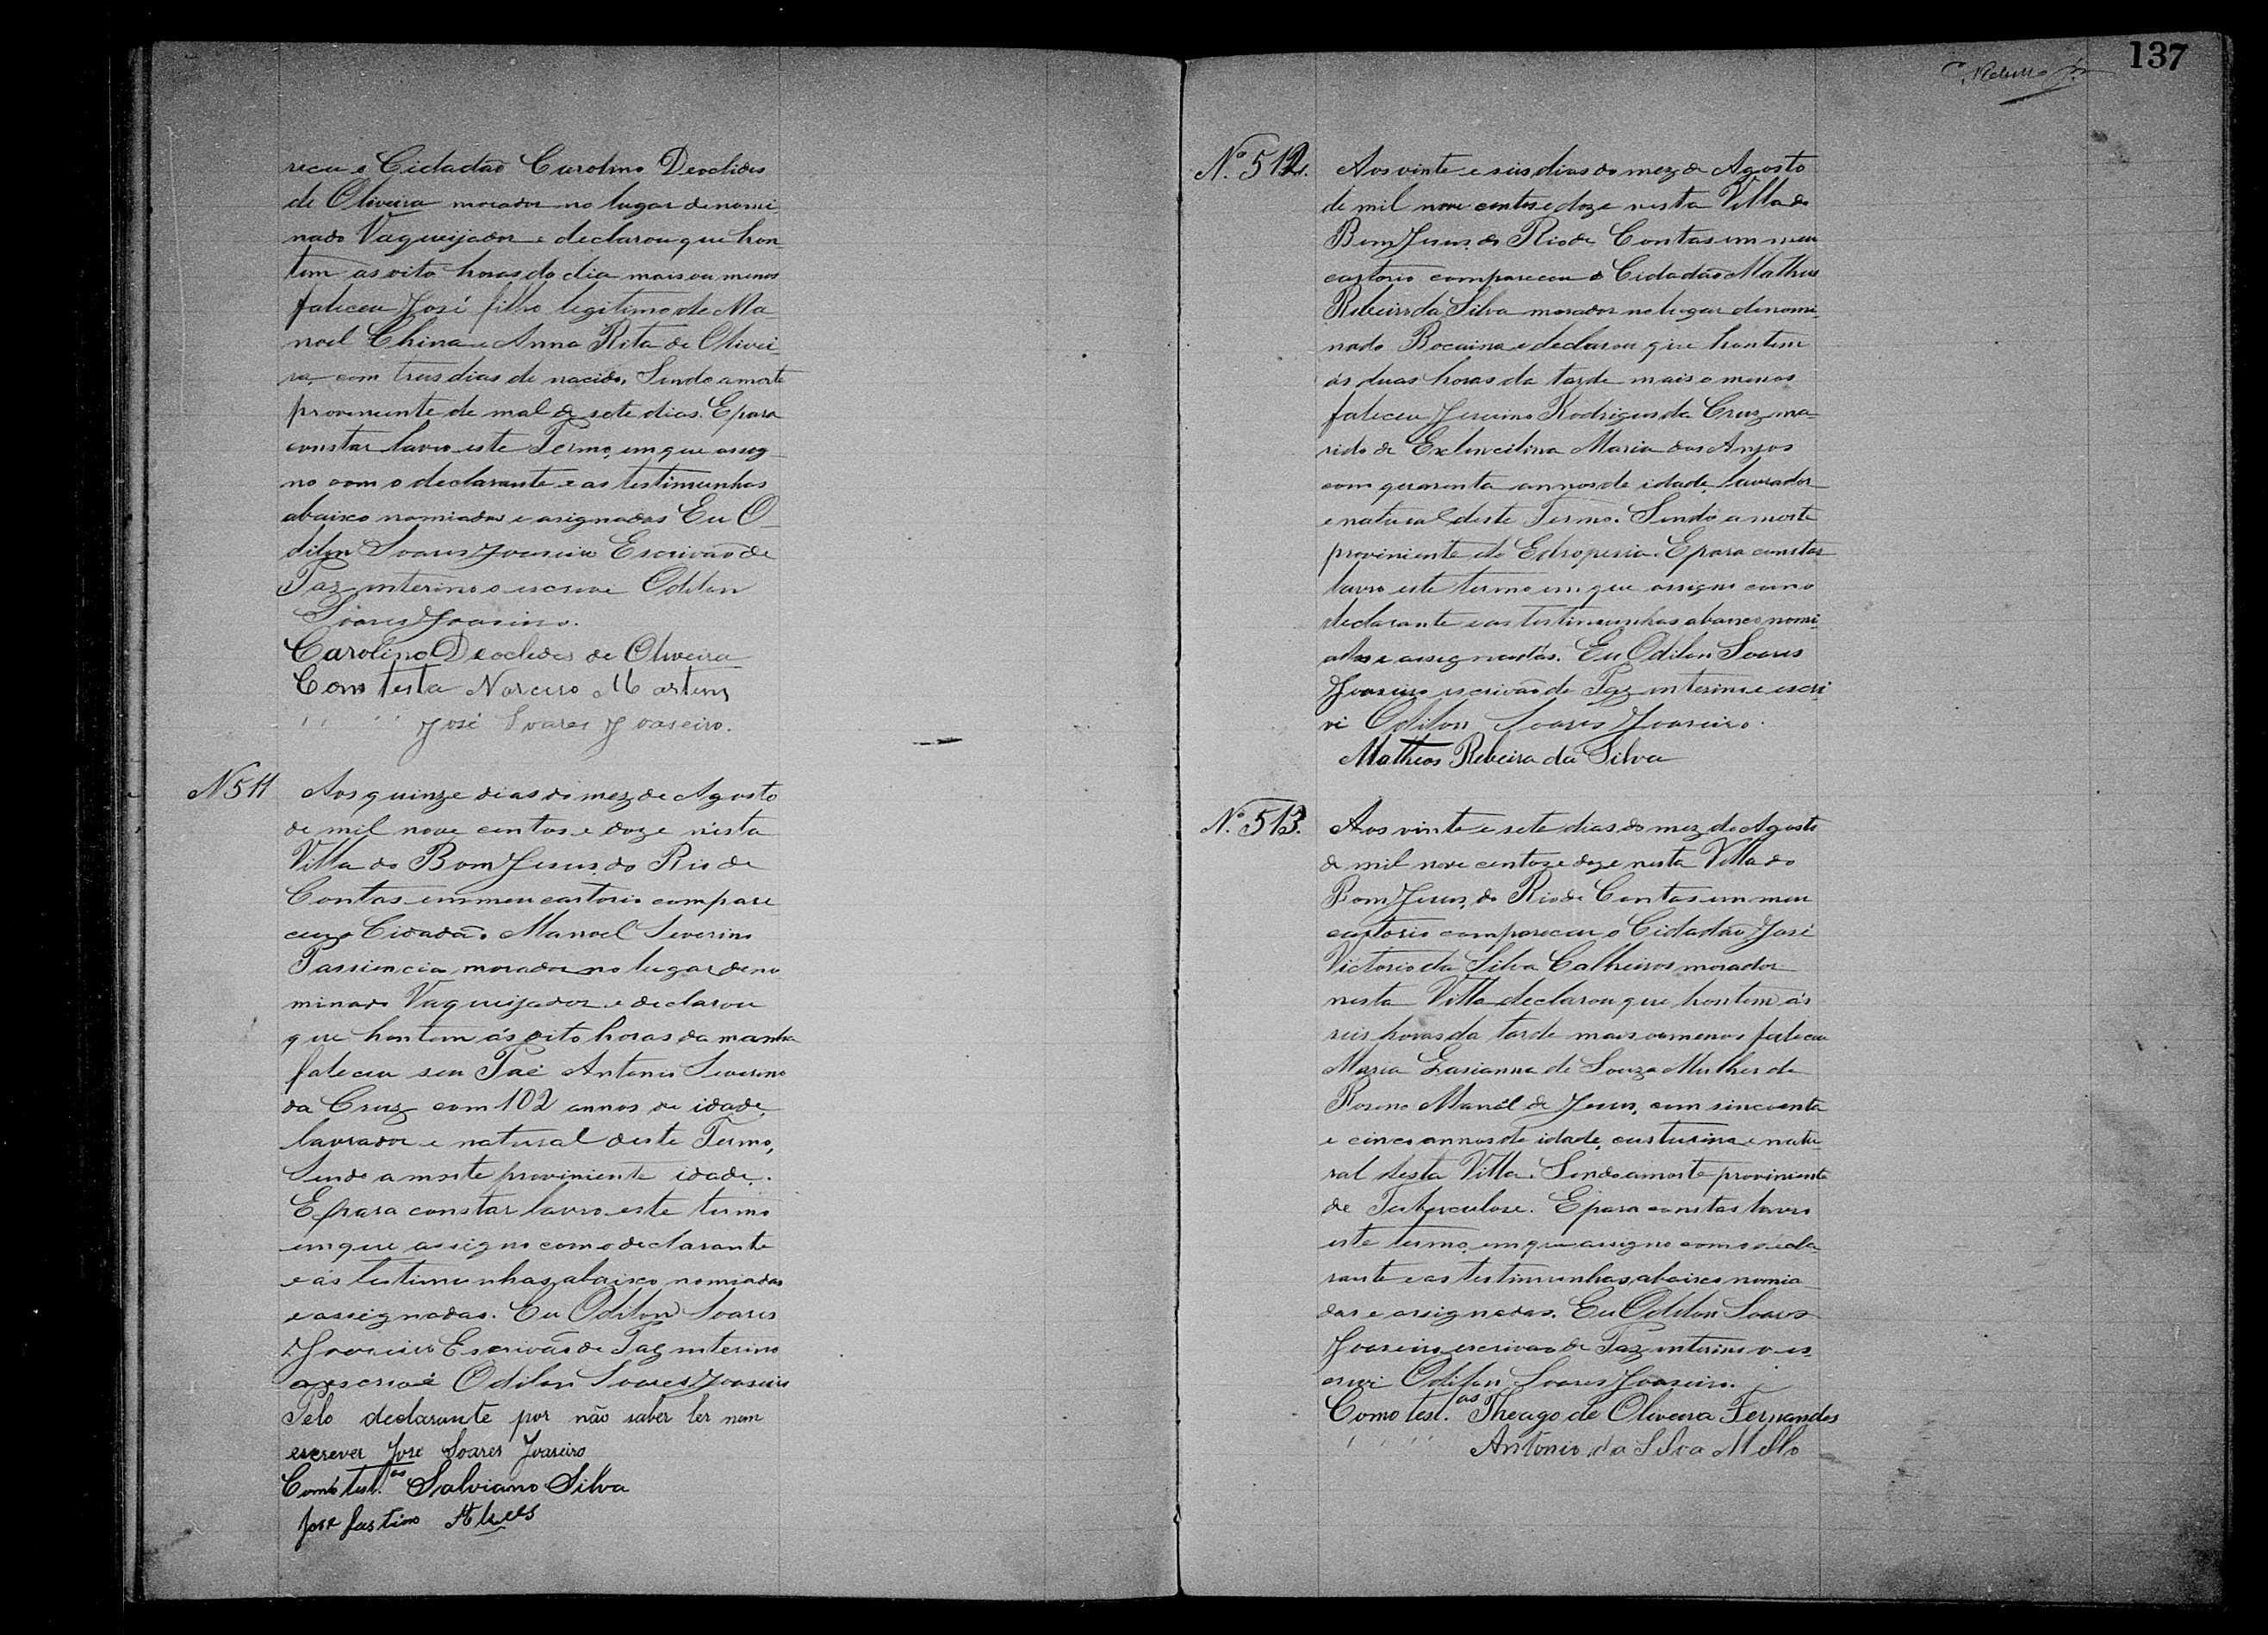 receu o Cidadão Carolino Deoclides
de Oliveira morador no lugar denomi-
nado Vaqueijador e declarou que hon-
tem as oito horas do dia mais ou menos
faleceu José filho legitimo de Ma
noel China e Anna Rita de Olivei-
ra, com treis dias de nacido, Sendo a morte
proveniente de mal de sete dias. E para
constar lavro este Termo, em que assig-
no com o declarante e as testimunhas
abaixo nomiadas e asignadas Eu O-
dilon Soares Joaseiro Escrivão de
Paz interino o escrevi Odilon
Soares Joaseiro.
Carolino Deoclides de Oliveira
Com testa Narciso Martins
" " José Soares Joaseiro.
N 511 Aos quinze dias do mez de Agosto
de mil nove centos e doze nésta
Villa do Bom Jesus, do Rio de
Contas em meu cartorio compare
ceu o Cidadão Manoel Severino
Passiencia morador no lugar deno
minado Vaqueijador e declarou
que hontem ás oito horas da manha
faleceu seu Pae Antonio Severino
da Cruz com 102 annos de idade,
lavrador e natural deste Termo,
Sendo a morte proviniente idade.
E para constar lavro este termo
em que assigno com o declarante
e ás testimunhas, abaixo nomiadas
e assignadas. Eu Odilon Soares
Joaseiro Escrivão de Paz interino
o escrevi Odilon Soares Joaseiro
Pelo declarante por não saber ler nem
escrever José Soares Joaseiro
Como test.as Salviano Silva
José Justino Alves
137
Nº 512. Aos vinte e seis dias do mez de Agosto
de mil nove centos e doze nesta Villa do
Bom Jesus, do Rio de Contas em meu
cartorio compareceu o Cidadão Matheus
Ribeiro da Silva morador no lugar denomi-
nado Bocaina e declarou que hontem
ás duas horas da tarde mais o menos
faleceu Jesuino Rodrigues da Cruz, ma-
rido de Maria dos Anjos
com quarenta annos de idade, lavrador
e natural deste Termo. Sendo a morte
proviniente de Edropesia. E para constar
lavro este termo em que assigno com o
declarante e as testimunhas abaixo nomi-
adas e assignadas. Eu Odilon Soares
Joaseiro escrivão de Paz interino e escri
vi Odilon Soares Joaseiro.
Matheos Ribeira da Silva
Nº 513. Aos vinte e sete dias do mez de Agosto
de mil nove centos e doze nesta Villa do
Bom Jesus, do Rio de Contas em meu
cartorio compareceu o Cidadão José
Victorio da Silva Calheiros morador
nesta Villa declarou que hontem ás
seis horas da tarde mais ou menos faleceu
Maria de Souza Mulher de
Roseno Manél de Jesus, com sincoenta
e cinco annos de idade, custurina e natu-
ral desta Villa. Sendo a morte proviniente
de Tuberculose. E para constar lavro
este termo, em que assigno com o decla-
rante e as testimunhas, abaixo nomia
das e assignadas. Eu Odilon Soares
Joaseiro escrivão de Paz interino o es-
crevi Odilon Soares Joaseiro.
Como test.as Theago de Oliveira Fernandes
" " Antonio da Silva Mello